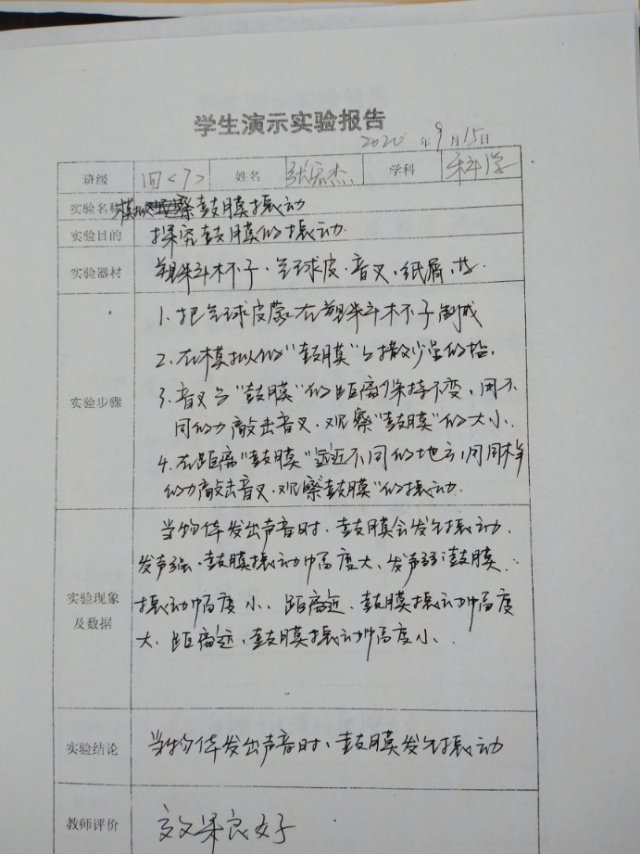 学生演示实验报告
2020年9月15日
班级 四<7> 姓名 张宏杰 学科 科学
实验名称 模拟观察鼓膜振动
实验目的 探究鼓膜的振动
实验器材 塑料杯子、气球皮、音叉、纸屑、
实验步骤
1.把气球皮蒙在塑料杯子制成
2.在模拟的"鼓膜"上撒少量的
3.音叉与"鼓膜"的距离保持不变,用不
同的力敲击音叉,观察"鼓膜"的大小.
4.在距离"鼓膜"远近不同的地方,用同样
的力敲击音叉.观察鼓膜"的振动.
实验现象及数据
当物体发出声音时、鼓膜会发生振动.
发声强、鼓膜振动幅度大、发声弱鼓膜
振动幅度小、距离近、鼓膜振动幅度
大、距离远、鼓膜振动幅度小、
实验结论 当物体发出声音时、鼓膜发生振动
教师评价 效果良好